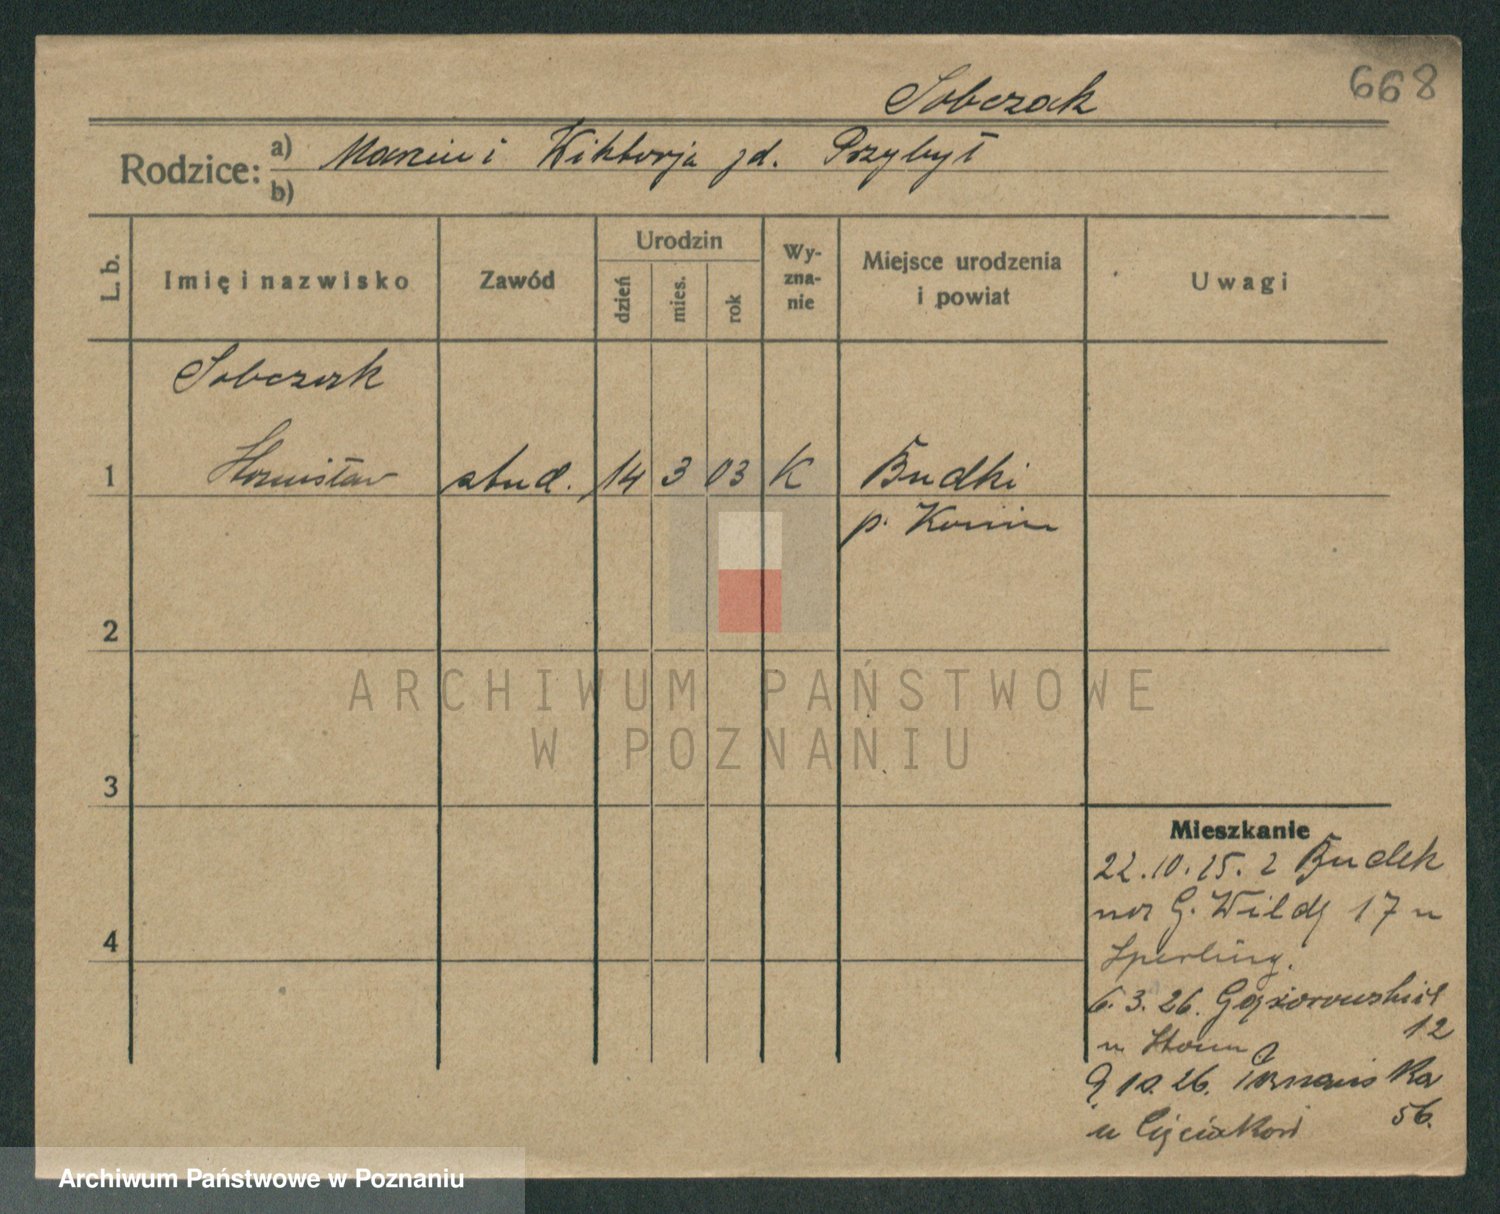 668
Sobczak
Rodzice: a) Marcin i Wiktorja zd. Przybył
b)
L. b.
Imię i nazwisko
Zawód
Urodzin
dzień
mies.
rok
Wy-
zna-
nie
Miejsce urodzenia
i powiat
Uwagi
Sobczak
1 Stanisław stud. 14 3 03 K Budki
p. Konin
2
3
4
Mieszkanie
22.10.25. z Budek
na G. Wildę 17 u
Sperling.
6.3.26. Gąsiorowskich
12
u
9.10.26. Poznańska
56.
u
ARCHIWUM PAŃSTWOWE
W POZNANIU
Archiwum Państwowe w Poznaniu